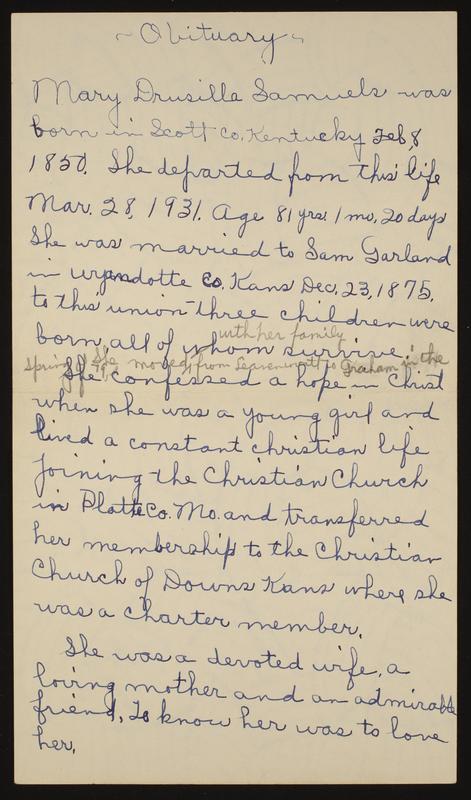 ~ Obituary ~
Mary Drusilla Samuels was
born in Scott Co. Kentucky Feb 8
1850. She departed from this life
Mar. 28, 1931. Age 81 yrs. 1 mo. 20 days
She was married to Sam Garland
in Wyandotte Co. Kans Dec. 23, 1875.
to this union three children were
born, all of whom survive.
with her family
Spring of 79 She moved from Leavenworth to Graham in the
She confessed a hope in Christ
when she was a young girl and
lived a constant christian life
joining the Christian Church
in Platte Co. Mo. and transferred
her membership to the Christian
Church of Downs Kans where she
was a charter member.
She was a devoted wife, a
loving mother and an admirable
friend. To know her was to love
her.